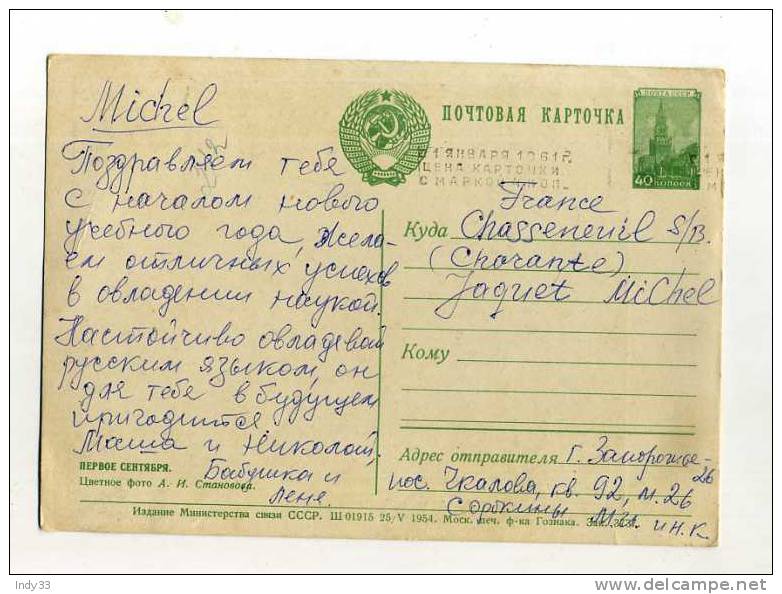 Michel
Поздравляем тебя
с началом нового
учебного года, жела-
ем отличных успехов
в овладении наукой.
Настойчиво овладевай
русским языком, он
для тебя в будущем
пригодится.
Маша и Николай,
Бабушка и
Лена.
ПЕРВОЕ СЕНТЯБРЯ.
Цветное фото А. И. Становова.
ПОЧТОВАЯ КАРТОЧКА
ПОЧТА СССР
40 КОПЕЕК
1 ЯНВАРЯ 1961 Г.
ЦЕНА КАРТОЧКИ
С МАРКОЙ КОП.
France
Куда Chasseneuil S/B.
(Charante)
Jaquet Michel
Кому
Адрес отправителя г. Запорожье-
26
пос. Чкалова, кв. 92, м. 26
Соркины М.И. и Н.К.
Издание Министерства связи СССР. Ш 01915 25/V 1954. Моск. печ. ф-ка Гознака. Зак.
Indy33
www.delcampe.net